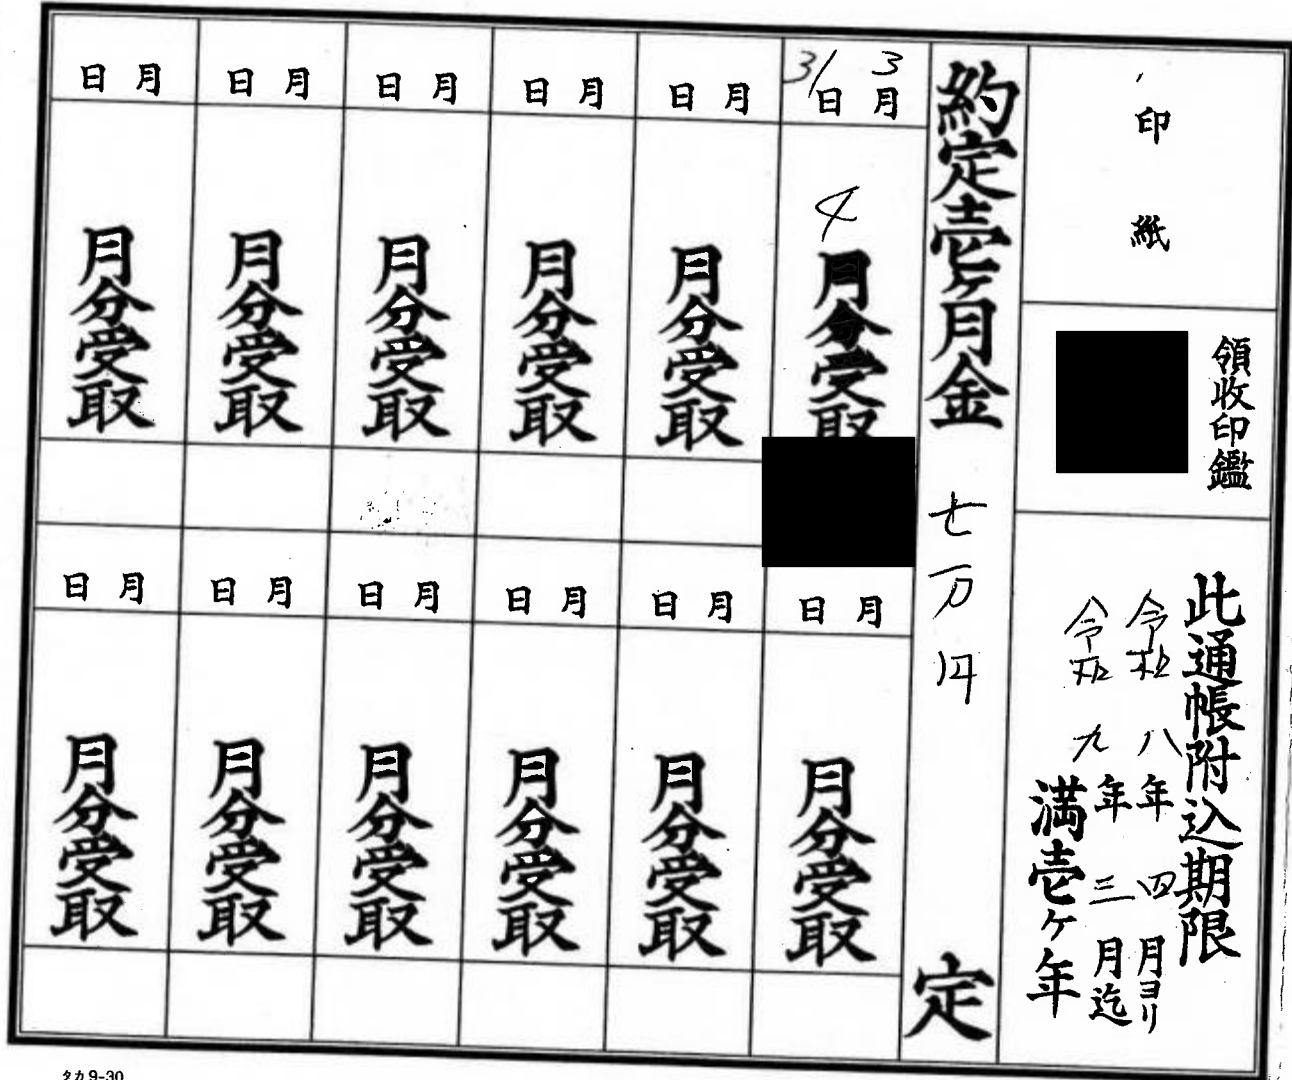 印紙
領収印鑑
此通帳附込期限
令和八年四月ヨリ
令和九年三月迄
満壱ヶ年
約定壱ヶ月金七万円定
3月31日
4月分受取
月日
月分受取
月日
月分受取
月日
月分受取
月日
月分受取
月日
月分受取
月日
月分受取
月日
月分受取
月日
月分受取
月日
月分受取
月日
月分受取
月日
月分受取
タカ9-30